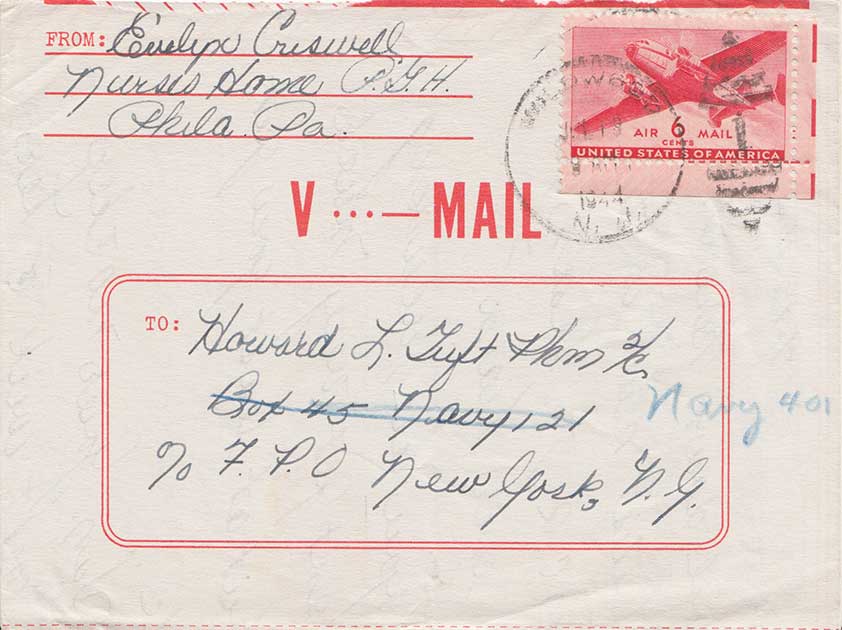 FROM: Evelyn Criswell
Nurses Home P.G.H.
Phila. Pa.
AIR 6 MAIL
CENTS
UNITED STATES OF AMERICA
WILDWOOD
1944
N.J.
V ···— MAIL
TO: Howard L. Tuft Phm 2/c
Box 45 Navy 121
Navy 401
c/o F.P.O New York, N.Y.